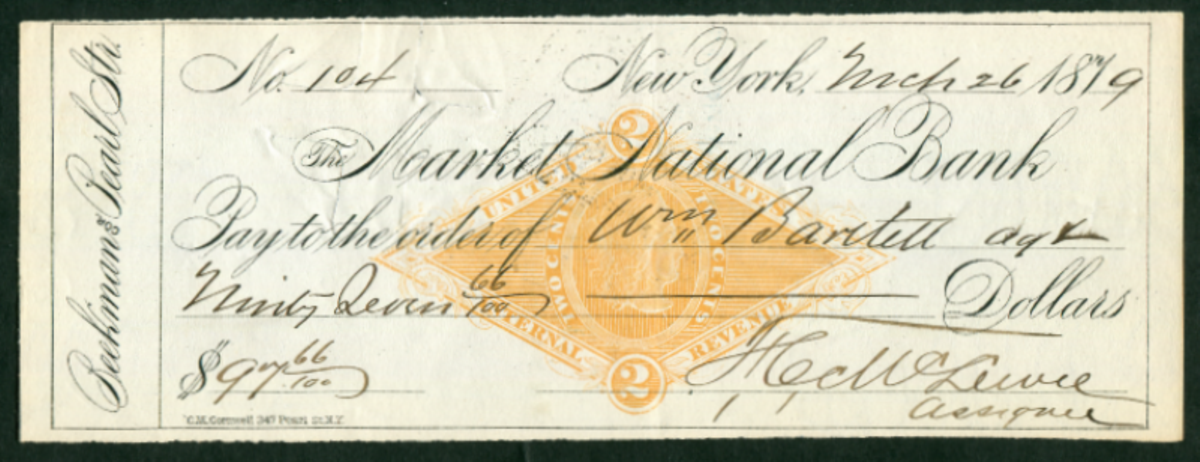 Beekman & Pearl Str.
No. 104 New York, Mch 26 1879
The Market National Bank
Pay to the order of Wm Bartlett agt
Ninty Seven 66/100 Dollars
$97 66/100
Assignee
C.M. Cornwell, 247 Pearl St. N.Y.
2
UNITED STATES
TWO CENTS TWO CENTS
INTERNAL REVENUE
2